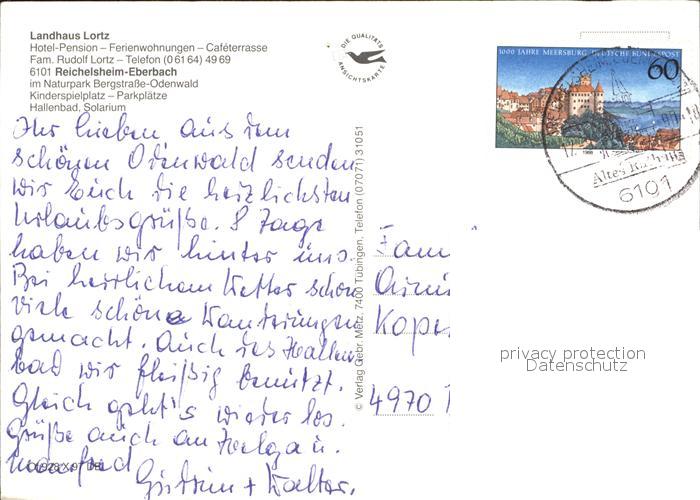 Landhaus Lortz
Hotel-Pension – Ferienwohnungen – Caféterrasse
Fam. Rudolf Lortz – Telefon (0 61 64) 49 69
6101 Reichelsheim-Eberbach
im Naturpark Bergstraße-Odenwald
Kinderspielplatz – Parkplätze
Hallenbad, Solarium
DIE QUALITÄTS
ANSICHTSKARTE
1000 JAHRE MEERSBURG DEUTSCHE BUNDESPOST
60
1988
Altes Rathaus
6101
Ihr lieben aus dem
schönen Odenwald senden
wir Euch die herzlichsten
Urlaubsgrüße. 8 Tage
haben wir hinter uns.
Bei herrlichem Wetter schon
viele schöne Wanderungen
gemacht. Auch das Hallen
bad wir fleißig benützt.
Gleich geht's wieder los.
Grüße auch an Helga u.
Manfred
Gudrun + Walter.
© Verlag Gebr. Metz, 7400 Tübingen, Telefon (07071) 31051
Fam
Kope
4970
privacy protection
Datenschutz